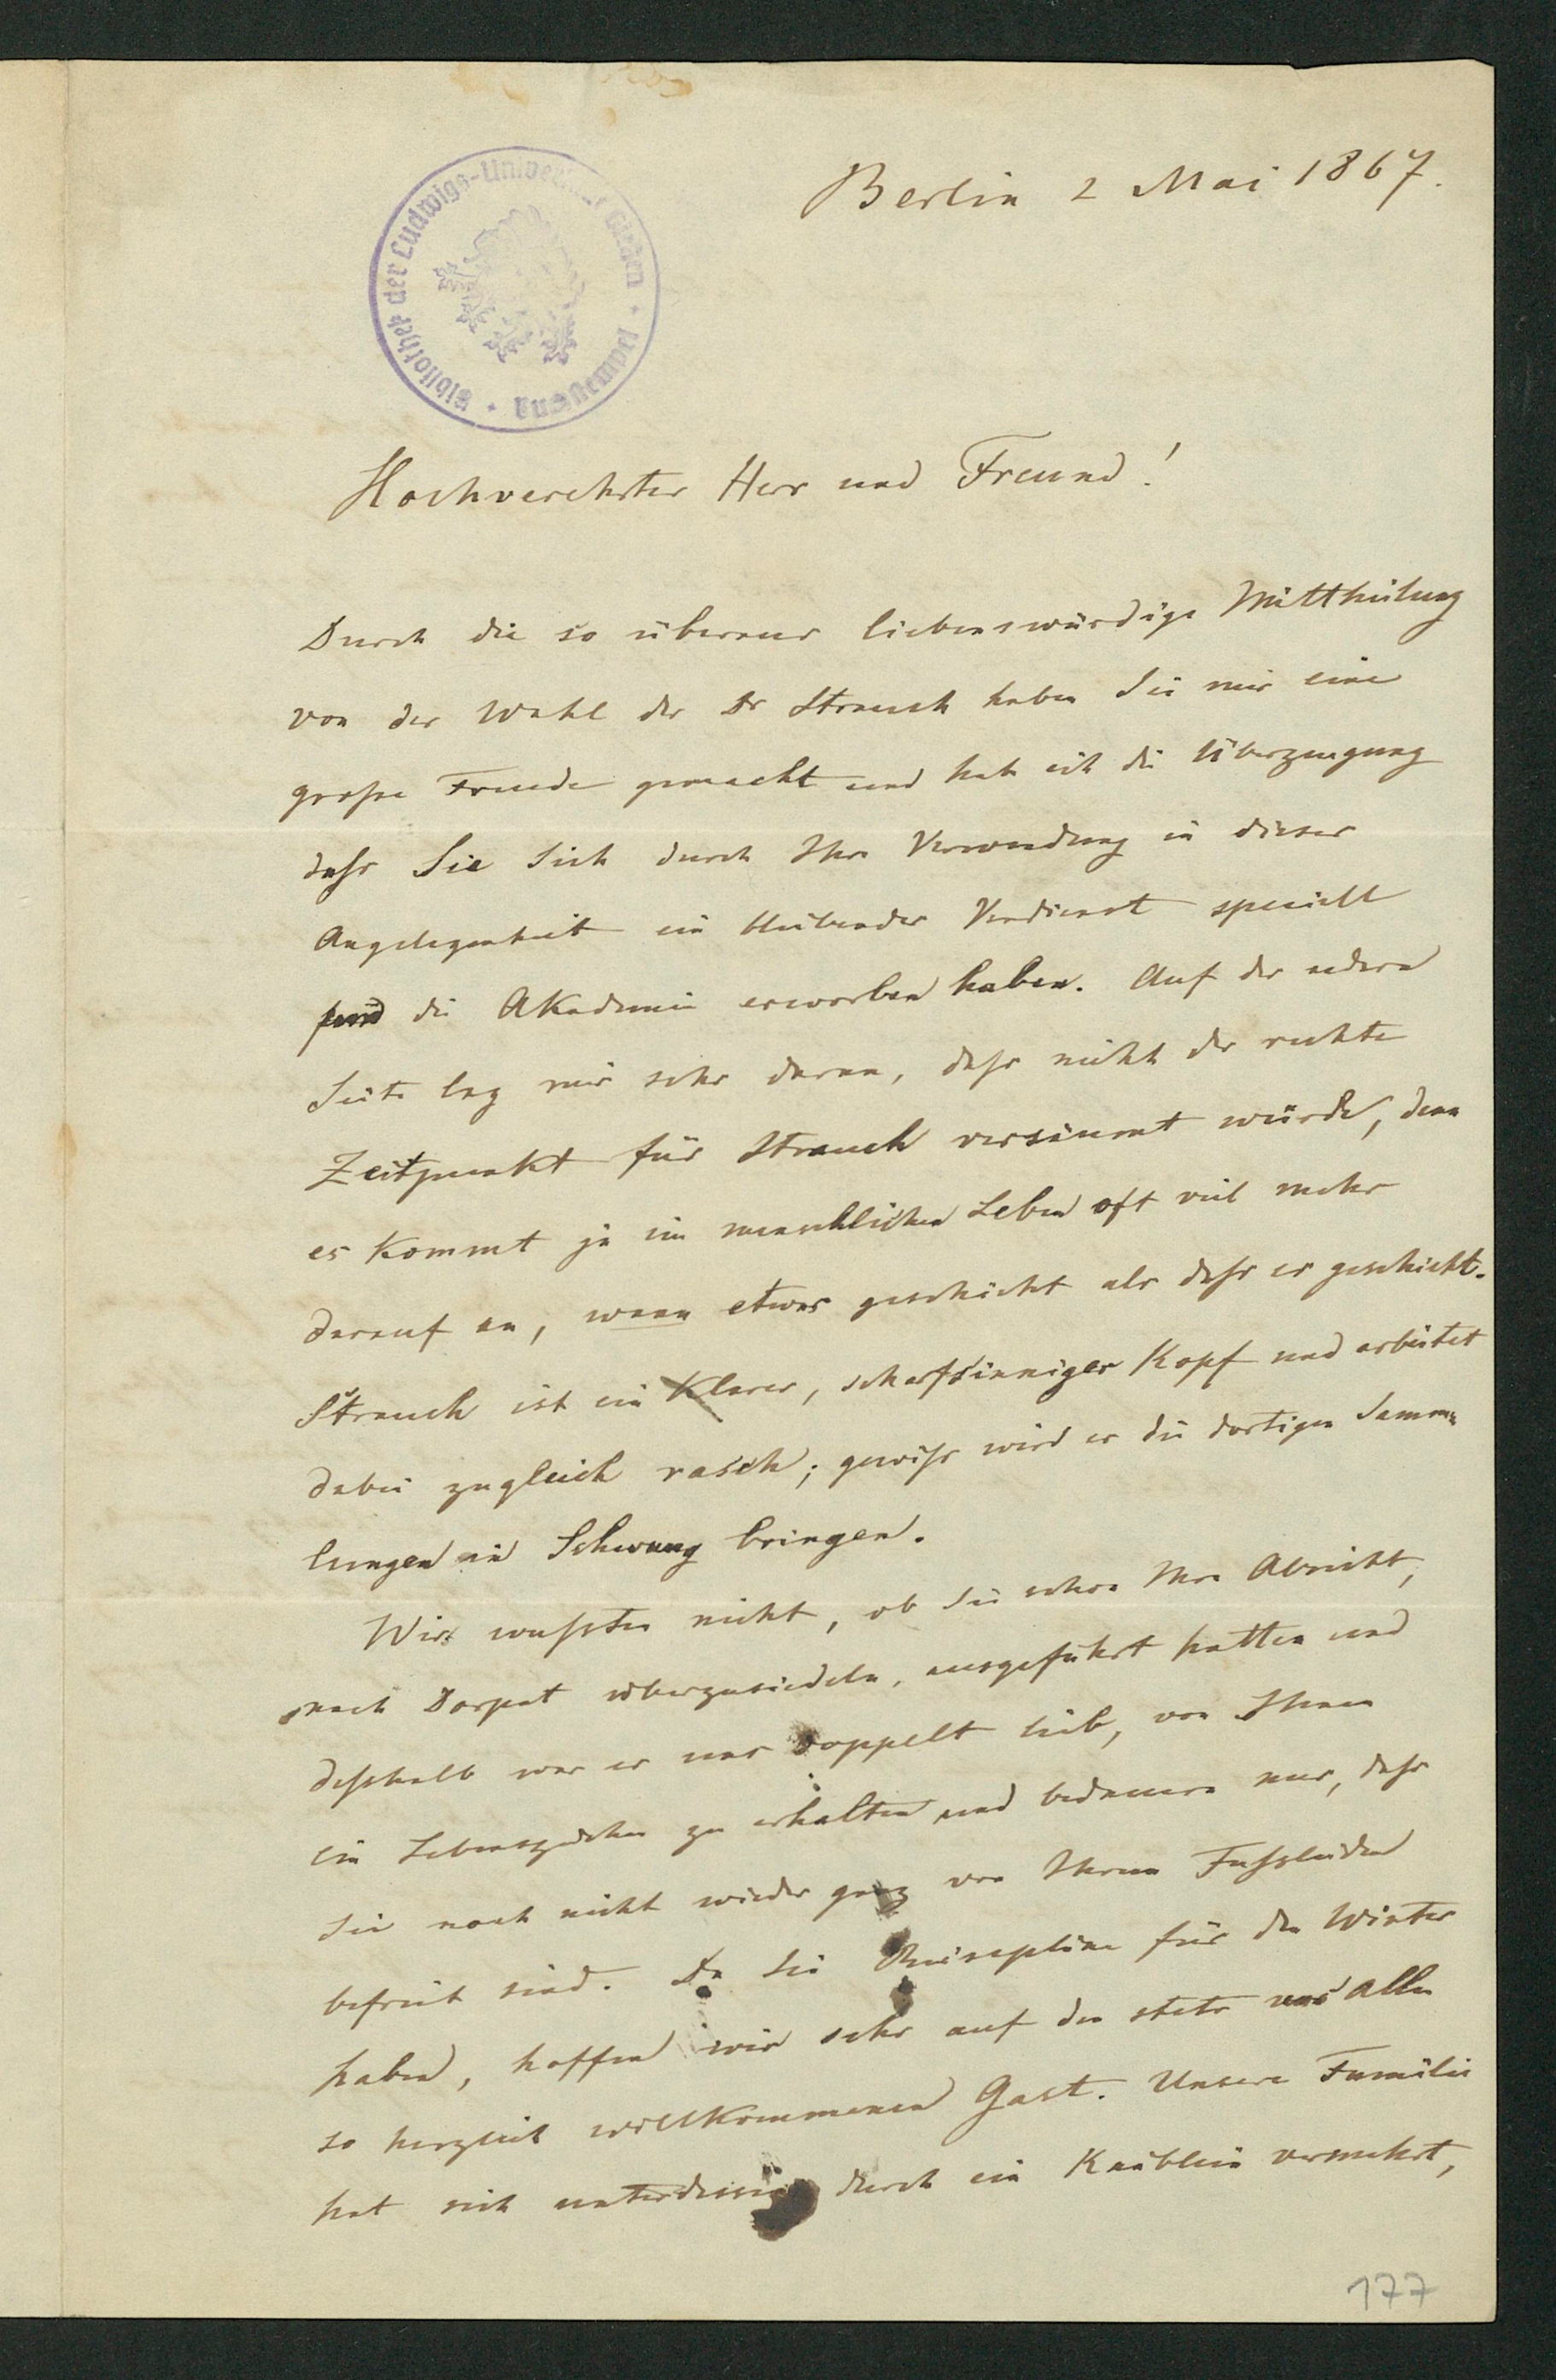 Berlin 2 Mai 1867.
Bibliothek der Ludwigs-Universität Gießen * Tauschstempel *
Hochverehrter Herr und Freund!
Durch die so überaus liebenswürdige Mittheilung
von der Wahl des Dr Strauch haben Sie mir eine
große Freude gemacht und hab ich die Überzeugung
daß Sie Sich durch Ihre Verwendung in dieser
Angelegenheit ein bleibendes Verdienst speciell
um die Akademie erworben haben. Auf der andern
Seite lag mir sehr daran, daß nicht der rechte
Zeitpunkt für Strauch versäumt würde, denn
es kommt ja im menschlichen Leben oft viel mehr
darauf an, wann etwas geschieht als daß es geschieht.
Strauch ist ein klarer, scharfsinniger Kopf und arbeitet
dabei zugleich rasch; gewiß wird er die dortigen Samm-
lungen in Schwung bringen.
Wir wußten nicht, ob Sie schon Ihre Absicht,
nach Dorpat überzusiedeln, ausgeführt hatten und
deßhalb war es uns doppelt lieb, von Ihnen
ein Lebenszeichen zu erhalten und bedauern nur, daß
Sie noch nicht wieder ganz von Ihrem Fußleiden
befreit sind. Da Sie Reisepläne für den Winter
haben, hoffen wir sehr auf den stets uns Allen
so herzlich willkommenen Gast. Unsere Familie
hat sich unterdessen durch ein Knäblein vermehrt,
177